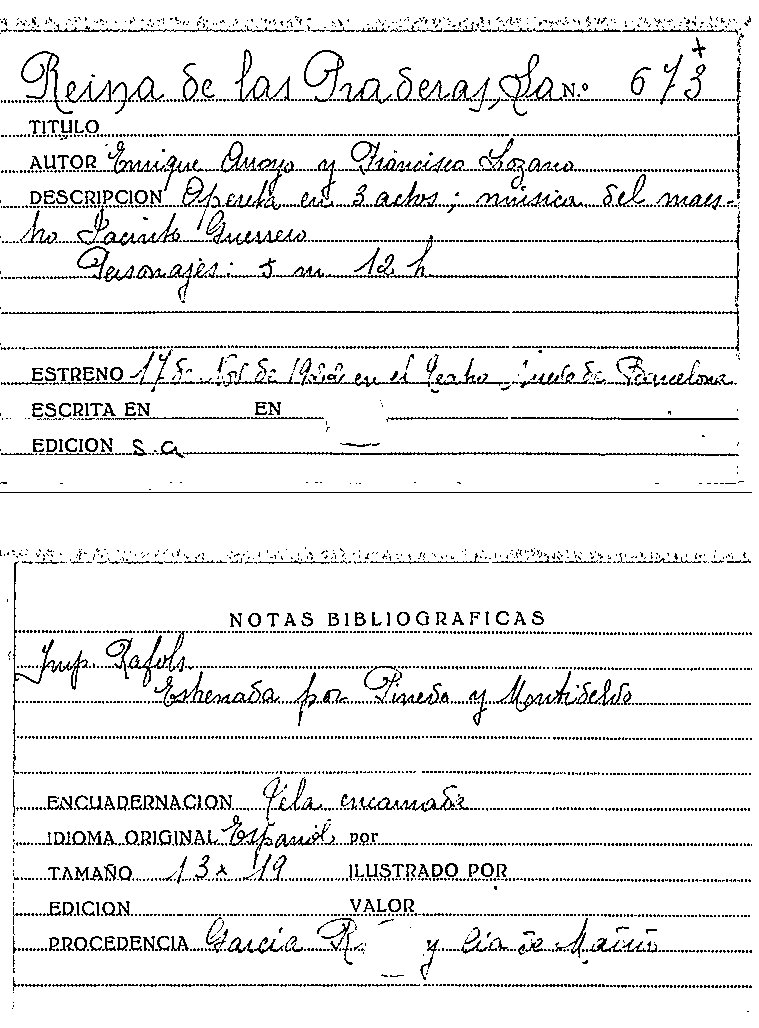 Reina de las Praderas, La N.º 673
TITULO
AUTOR Enrique Arroyo y Francisco Lozano
DESCRIPCION Opereta en 3 actos; música del maes-
tro Jacinto Guerrero
Personajes: 5 m 12 h
ESTRENO 17 de Nov de 1922 en el Teatro de Barcelona
ESCRITA EN EN
EDICION S. a
NOTAS BIBLIOGRAFICAS
Imp. Rafols
Estrenada por Pinedo y
ENCUADERNACION Tela encarnada
IDIOMA ORIGINAL Español por
TAMAÑO 13 x 19 ILUSTRADO POR
EDICION VALOR
PROCEDENCIA Garcia y Cia de